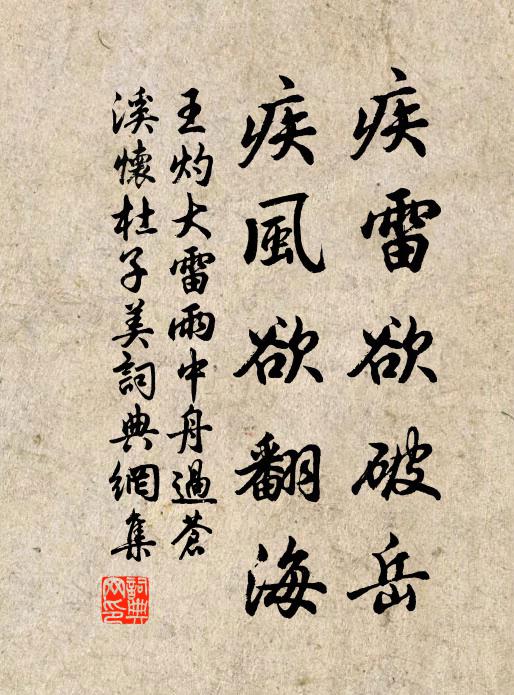 疾雷欲破岳
疾風欲翻海
王灼大雷雨中舟過蒼
溪懷杜子美詞典網集
詞典
网印